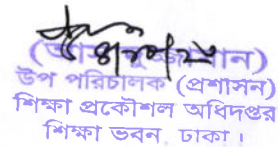 উপ পরিচালক (প্রশাসন)
শিক্ষা প্রকৌশল অধিদপ্তর
শিক্ষা ভবন, ঢাকা।